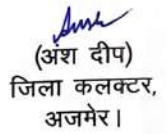 (अंश दीप)
जिला कलक्टर,
अजमेर।